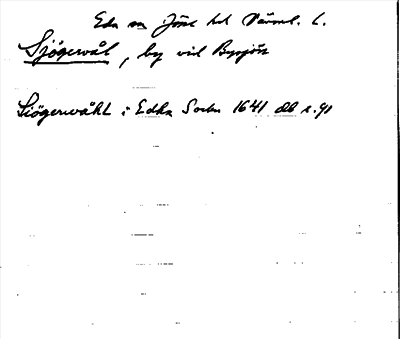 Eda sn Jösse hd Värml. l.
Sjögervål, by vid Bysjön
Siögerwåhl i Edha Sochn 1641 db s. 91